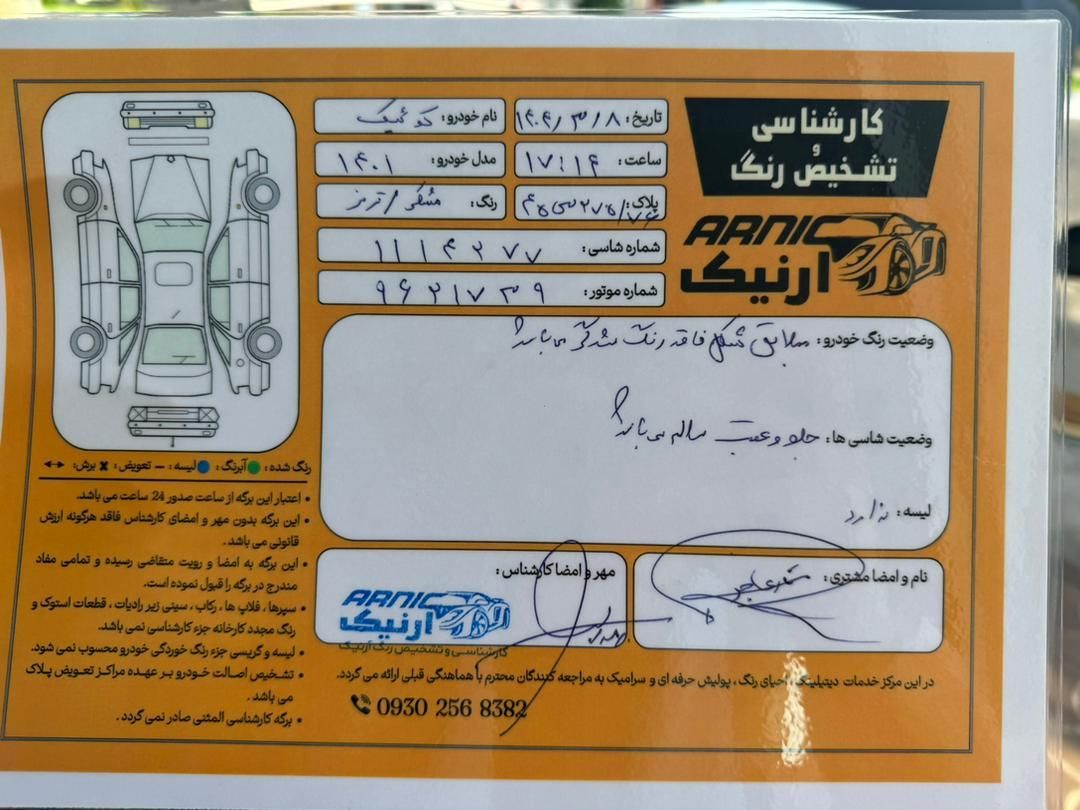 کارشناسی
و
تشخیص رنگ
ARNIC
ارنیک
تاریخ: ۱۴۰۴/۳/۸
نام خودرو: کوئیک
ساعت: ۱۷:۱۴
مدل خودرو: ۱۴۰۱
پلاک:
رنگ: مشکی / قرمز
شماره شاسی: ۱۱۱۴۲۷۷
شماره موتور: ۹۶۲۱۷۳۹
وضعیت رنگ خودرو: مطابق شکل فاقد رنگ شدگی می باشد
وضعیت شاسی ها: جلو و عقب سالم می باشد
لیسه: ندارد
رنگ شده: آبرنگ: لیسه: – تعویض: × برش: ↔
• اعتبار این برگه از ساعت صدور 24 ساعت می باشد.
• این برگه بدون مهر و امضای کارشناس فاقد هرگونه ارزش
قانونی می باشد.
• این برگه به امضا و رویت متقاضی رسیده و تمامی مفاد
مندرج در برگه را قبول نموده است.
• سپرها، فلاپ ها، رکاب، سینی زیر رادیات، قطعات استوک و
رنگ مجدد کارخانه جزء کارشناسی نمی باشد.
• لیسه و گریسی جزء رنگ خوردگی خودرو محسوب نمی شود.
• تشخیص اصالت خودرو بر عهده مراکز تعویض پلاک
می باشد.
• برگه کارشناسی المثنی صادر نمی گردد.
نام و امضا مشتری:
مهر و امضا کارشناس:
ARNIC
ارنیک
کارشناسی و تشخیص رنگ ارنیک
در این مرکز خدمات دیتیلینگ، احیای رنگ، پولیش حرفه ای و سرامیک به مراجعه کنندگان محترم با هماهنگی قبلی ارائه می گردد.
0930 256 8382